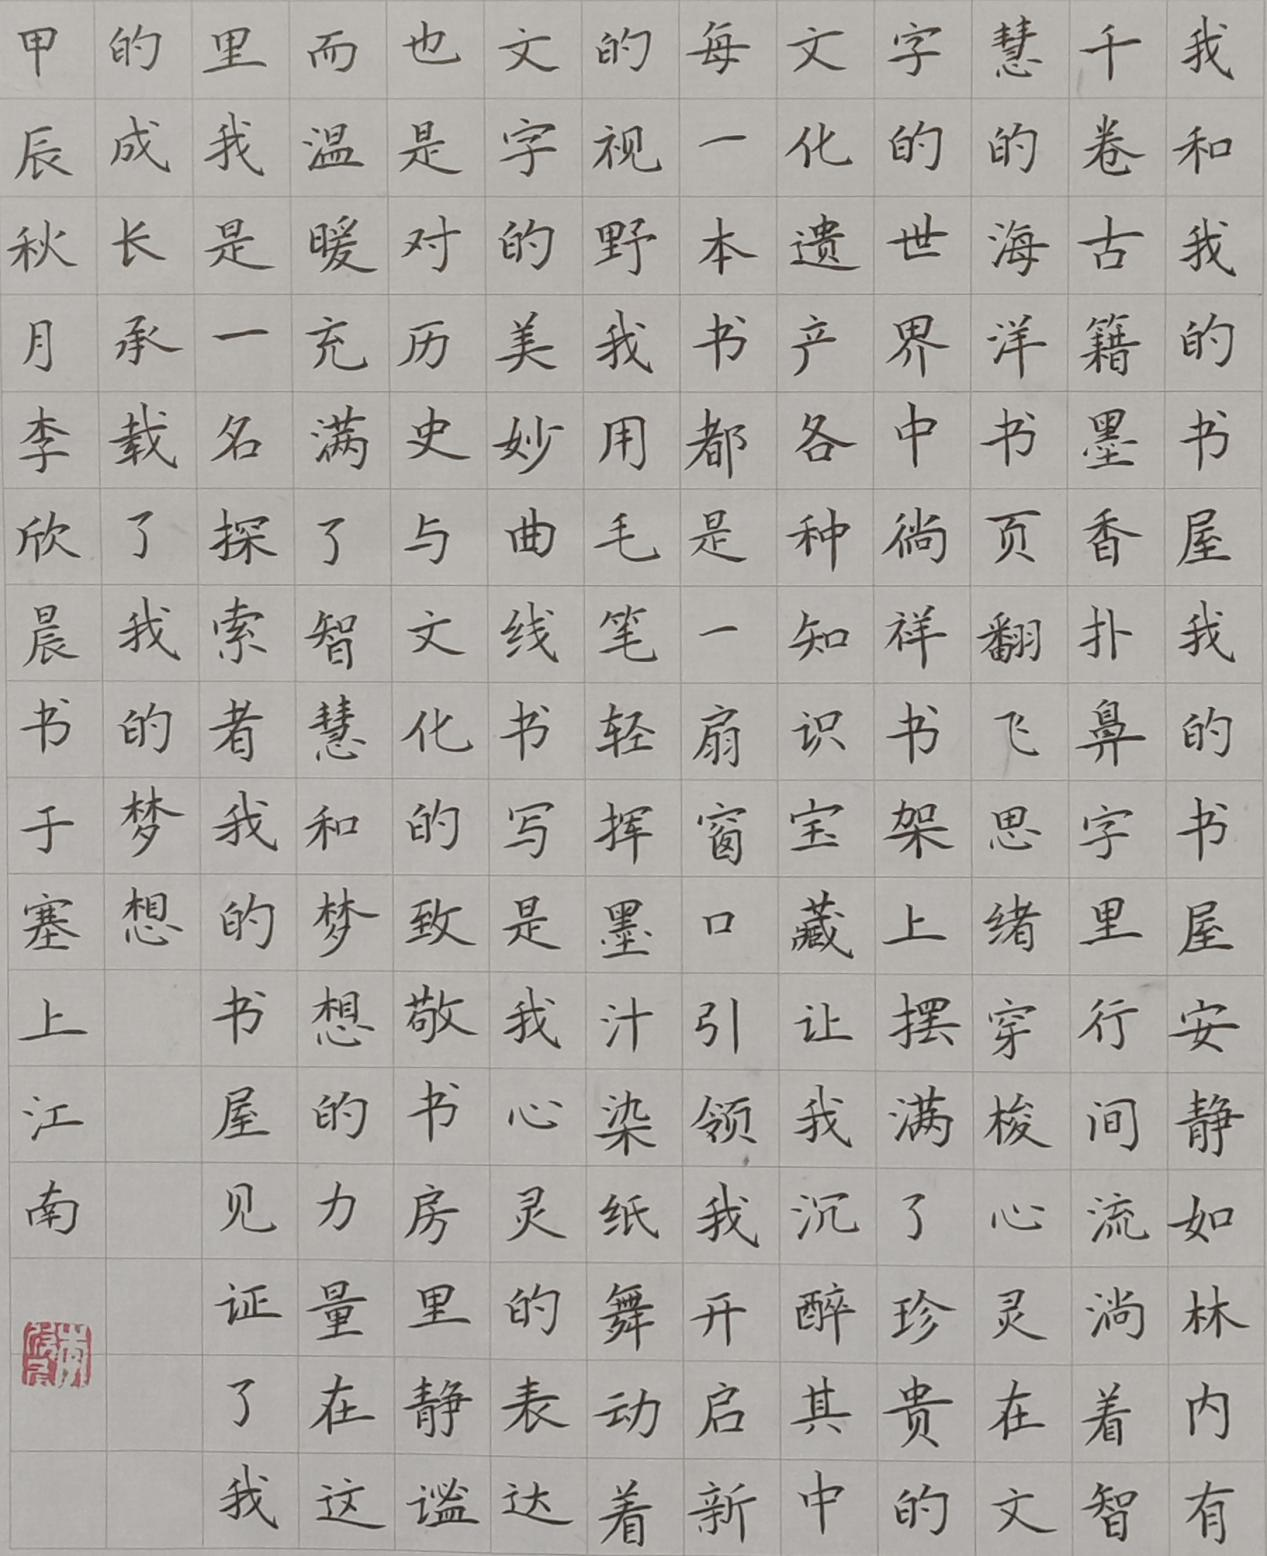 我和我的书屋我的书屋安静如林内有
千卷古籍墨香扑鼻字里行间流淌着智
慧的海洋书页翻飞思绪穿梭心灵在文
字的世界中徜徉书架上摆满了珍贵的
文化遗产各种知识宝藏让我沉醉其中
每一本书都是一扇窗口引领我开启新
的视野我用毛笔轻挥墨汁染纸舞动着
文字的美妙曲线书写是我心灵的表达
也是对历史与文化的致敬书房里静谧
而温暖充满了智慧和梦想的力量在这
里我是一名探索者我的书屋见证了我
的成长承载了我的梦想
甲辰秋月李欣晨书于塞上江南